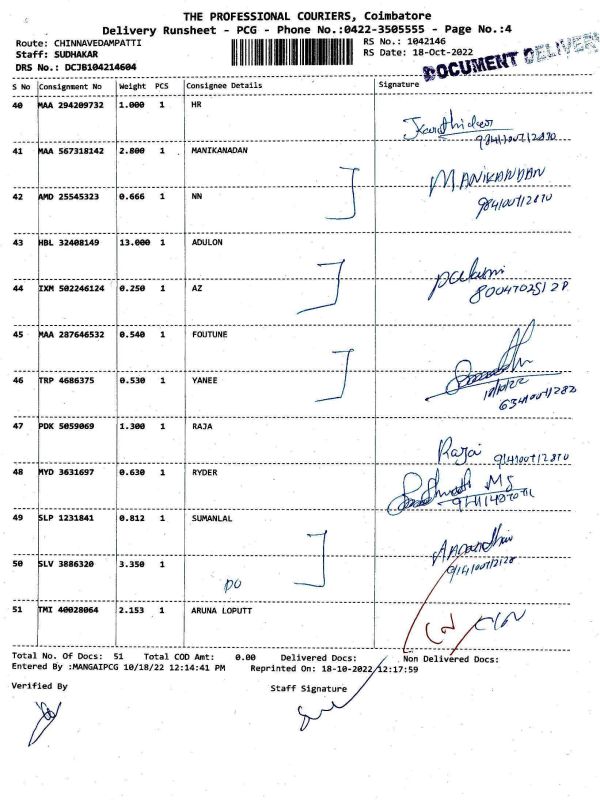 THE PROFESSIONAL COURIERS, Coimbatore
Delivery Runsheet - PCG - Phone No.:0422-3505555 - Page No.:4
Route: CHINNAVEDAMPATTI RS No.: 1042146
Staff: SUDHAKAR RS Date: 18-Oct-2022
DRS No.: DCJB104214604
DOCUMENT DELIVERY
S No Consignment No Weight PCS Consignee Details Signature
40 MAA 294209732 1.000 1 HR
41 MAA 567318142 2.800 1 MANIKANADAN
MANIKANDAN
42 AMD 25545323 0.666 1 NN
43 HBL 32408149 13.000 1 ADULON
44 IXM 502246124 0.250 1 AZ
45 MAA 287646532 0.540 1 FOUTUNE
46 TRP 4686375 0.530 1 YANEE
18/10/22
47 PDK 5059069 1.300 1 RAJA
Raja
48 MYD 3631697 0.630 1 RYDER
49 SLP 1231841 0.812 1 SUMANLAL
50 SLV 3886320 3.350 1
DO
51 TMI 40028064 2.153 1 ARUNA LOPUTT
Total No. Of Docs: 51 Total COD Amt: 0.00 Delivered Docs: Non Delivered Docs:
Entered By :MANGAIPCG 10/18/22 12:14:41 PM Reprinted On: 18-10-2022 12:17:59
Verified By Staff Signature